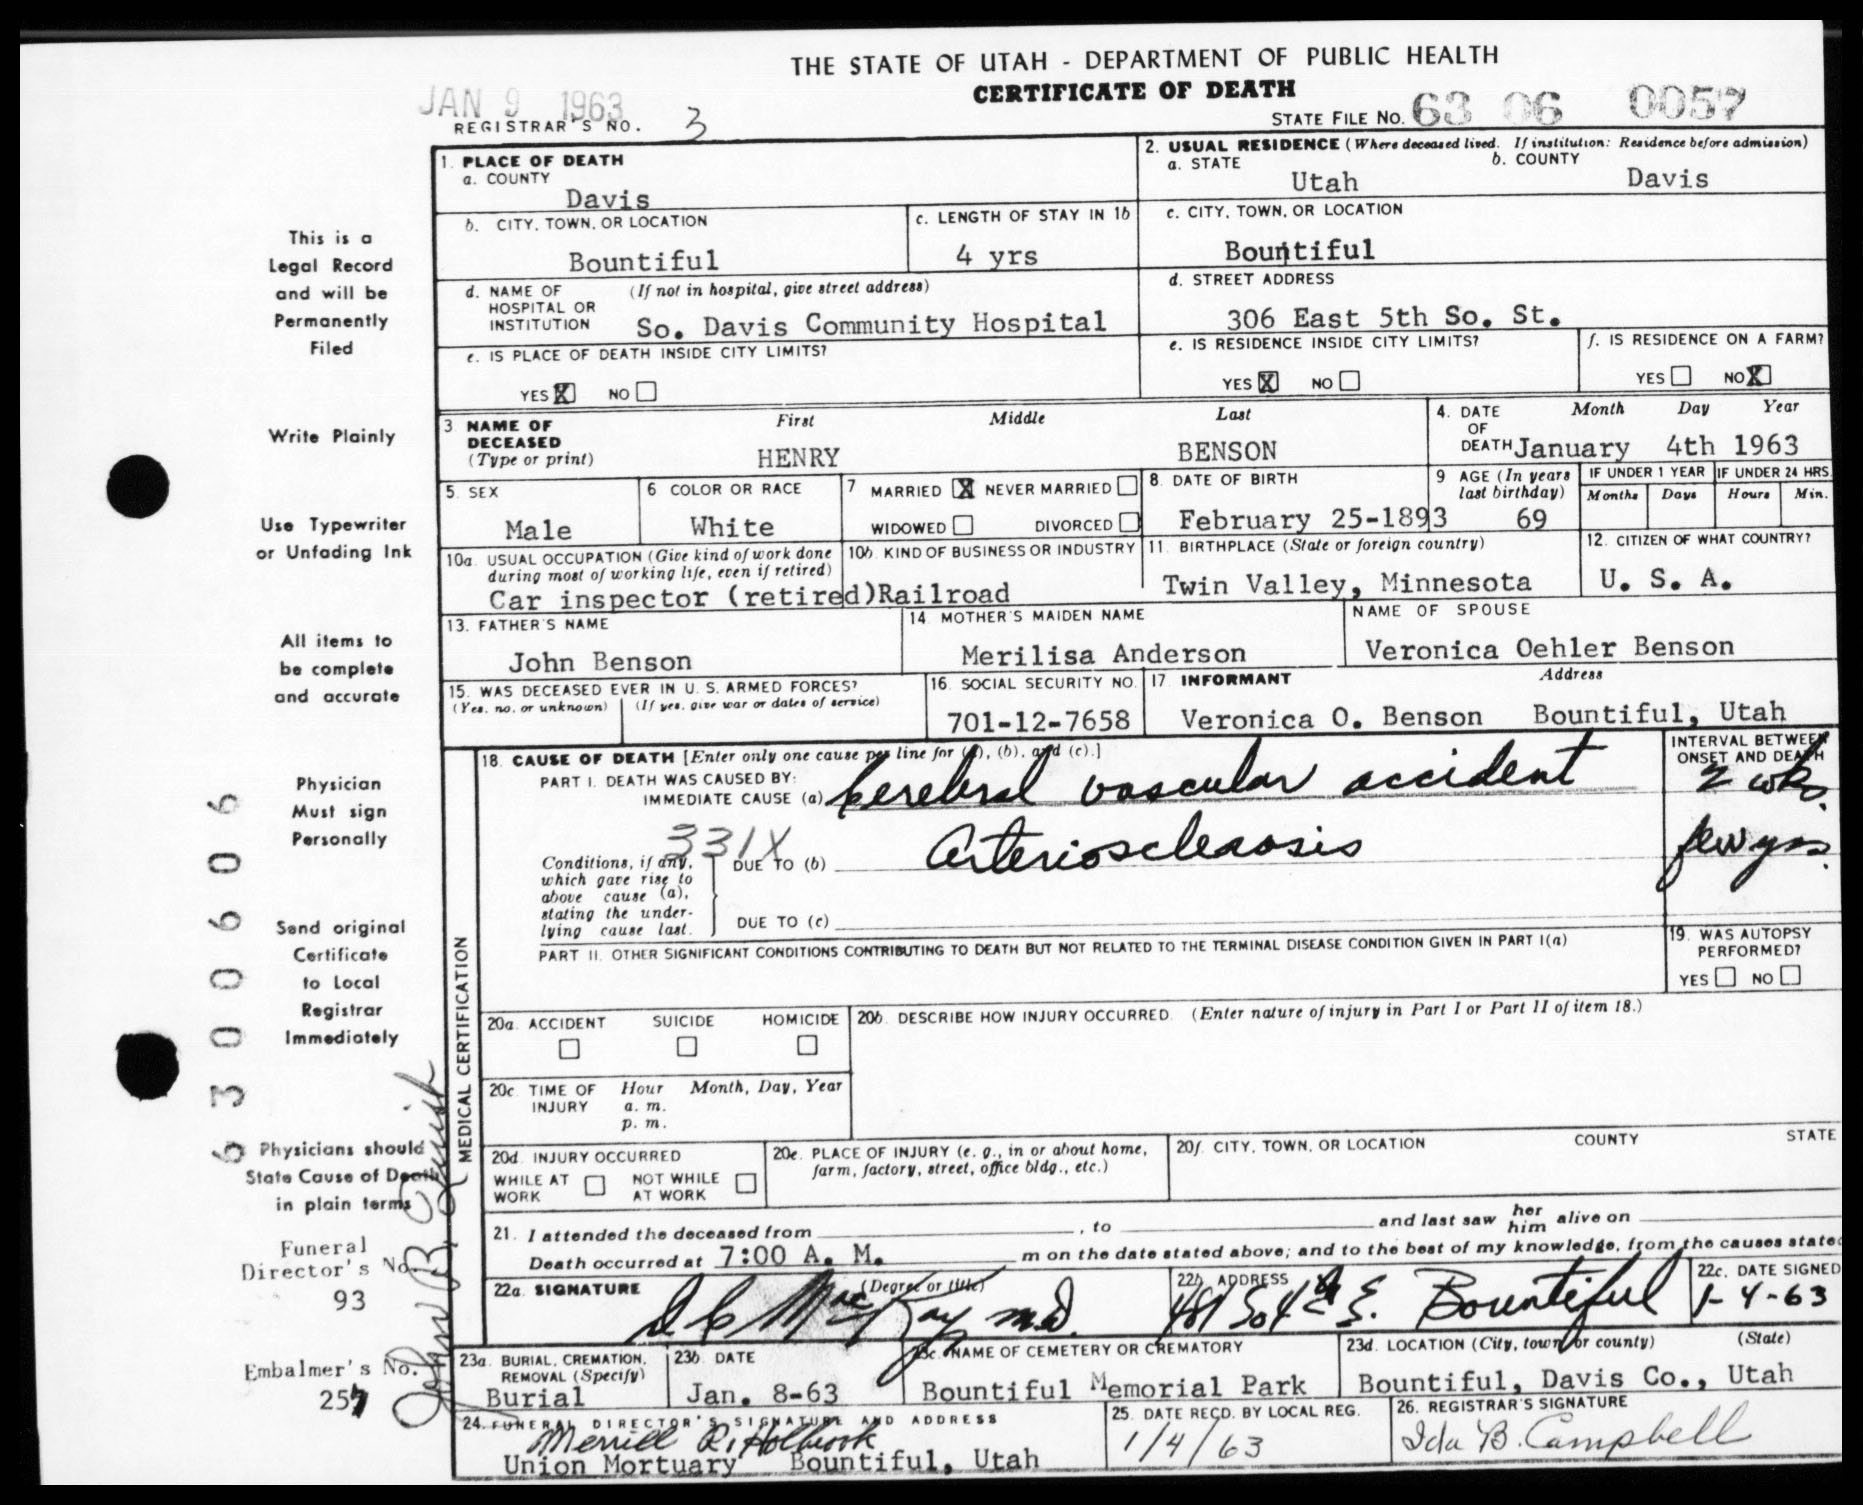 THE STATE OF UTAH - DEPARTMENT OF PUBLIC HEALTH
CERTIFICATE OF DEATH
JAN 9 1963
REGISTRAR'S NO. 3
STATE FILE No. 63 06 0057
1. PLACE OF DEATH
a. COUNTY
Davis
2. USUAL RESIDENCE (Where deceased lived. If institution: Residence before admission)
a. STATE Utah
b. COUNTY Davis
b. CITY, TOWN, OR LOCATION
Bountiful
c. LENGTH OF STAY IN 1b
4 yrs
c. CITY, TOWN, OR LOCATION
Bountiful
d. NAME OF HOSPITAL OR INSTITUTION (If not in hospital, give street address)
So. Davis Community Hospital
d. STREET ADDRESS
306 East 5th So. St.
e. IS PLACE OF DEATH INSIDE CITY LIMITS?
YES X NO
e. IS RESIDENCE INSIDE CITY LIMITS?
YES X NO
f. IS RESIDENCE ON A FARM?
YES NO X
3 NAME OF DECEASED (Type or print)
First Middle Last
HENRY BENSON
4. DATE OF DEATH Month Day Year
January 4th 1963
5. SEX
Male
6 COLOR OR RACE
White
7 MARRIED X NEVER MARRIED
WIDOWED DIVORCED
8. DATE OF BIRTH
February 25-1893
9 AGE (In years last birthday)
69
IF UNDER 1 YEAR
Months Days
IF UNDER 24 HRS.
Hours Min.
10a. USUAL OCCUPATION (Give kind of work done during most of working life, even if retired)
Car inspector (retired)
10b. KIND OF BUSINESS OR INDUSTRY
Railroad
11. BIRTHPLACE (State or foreign country)
Twin Valley, Minnesota
12. CITIZEN OF WHAT COUNTRY?
U. S. A.
13. FATHER'S NAME
John Benson
14. MOTHER'S MAIDEN NAME
Merilisa Anderson
NAME OF SPOUSE
Veronica Oehler Benson
15. WAS DECEASED EVER IN U. S. ARMED FORCES?
(Yes, no, or unknown) (If yes, give war or dates of service)
16. SOCIAL SECURITY NO.
701-12-7658
17. INFORMANT Address
Veronica O. Benson Bountiful, Utah
MEDICAL CERTIFICATION
18. CAUSE OF DEATH [Enter only one cause per line for (a), (b), and (c).]
PART I. DEATH WAS CAUSED BY:
IMMEDIATE CAUSE (a) Cerebral vascular accident
INTERVAL BETWEEN ONSET AND DEATH
2 wks.
331X
Conditions, if any, which gave rise to above cause (a), stating the underlying cause last.
DUE TO (b) Arteriosclerosis
few yrs.
DUE TO (c)
PART II. OTHER SIGNIFICANT CONDITIONS CONTRIBUTING TO DEATH BUT NOT RELATED TO THE TERMINAL DISEASE CONDITION GIVEN IN PART I(a)
19. WAS AUTOPSY PERFORMED?
YES NO
20a. ACCIDENT SUICIDE HOMICIDE
20b. DESCRIBE HOW INJURY OCCURRED. (Enter nature of injury in Part I or Part II of item 18.)
20c. TIME OF INJURY Hour Month, Day, Year
a. m.
p. m.
20d. INJURY OCCURRED
WHILE AT WORK NOT WHILE AT WORK
20e. PLACE OF INJURY (e. g., in or about home, farm, factory, street, office bldg., etc.)
20f. CITY, TOWN, OR LOCATION COUNTY STATE
21. I attended the deceased from , to and last saw her him alive on
Death occurred at 7:00 A. M. m on the date stated above; and to the best of my knowledge, from the causes stated
22a. SIGNATURE (Degree or title)
D C MacKay M.D.
22b. ADDRESS
481 So 4th E. Bountiful
22c. DATE SIGNED
1-4-63
23a. BURIAL, CREMATION, REMOVAL (Specify)
Burial
23b. DATE
Jan. 8-63
23c. NAME OF CEMETERY OR CREMATORY
Bountiful Memorial Park
23d. LOCATION (City, town, or county) (State)
Bountiful, Davis Co., Utah
24. FUNERAL DIRECTOR'S SIGNATURE AND ADDRESS
Merrill R. Holbrook
Union Mortuary Bountiful, Utah
25. DATE RECD. BY LOCAL REG.
1/4/63
26. REGISTRAR'S SIGNATURE
Ida B. Campbell
This is a
Legal Record
and will be
Permanently
Filed
Write Plainly
Use Typewriter
or Unfading Ink
All items to
be complete
and accurate
Physician
Must sign
Personally
Send original
Certificate
to Local
Registrar
Immediately
Physicians should
State Cause of Death
in plain terms
Funeral
Director's No.
93
Embalmer's No.
257
6300606
John B.